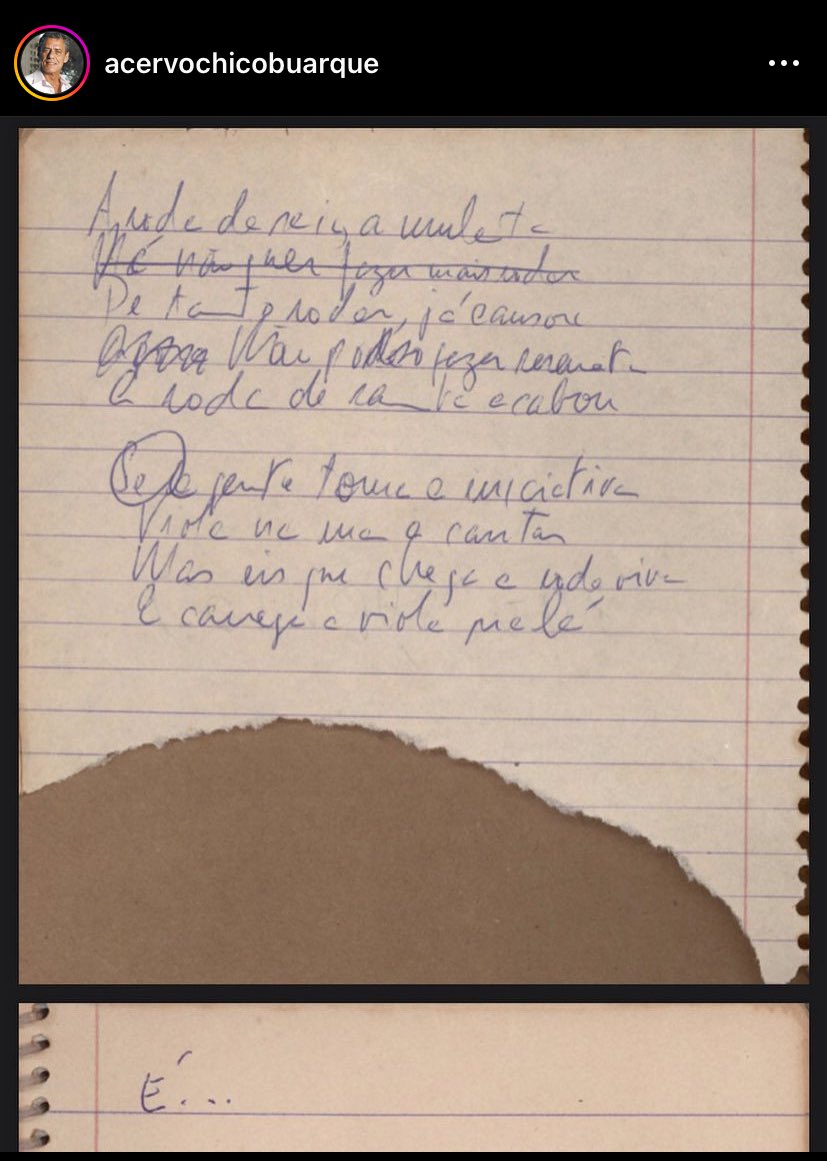 acervochicobuarque
A roda da saia, a mulata
Já não quer fazer mais rodar
De tanto rodar, já cansou
Não posso fazer serenata
A roda de samba acabou
Se a gente toma a iniciativa
Viola na rua a cantar
Mas eis que chega a roda viva
E carrega a viola pra lá
É...